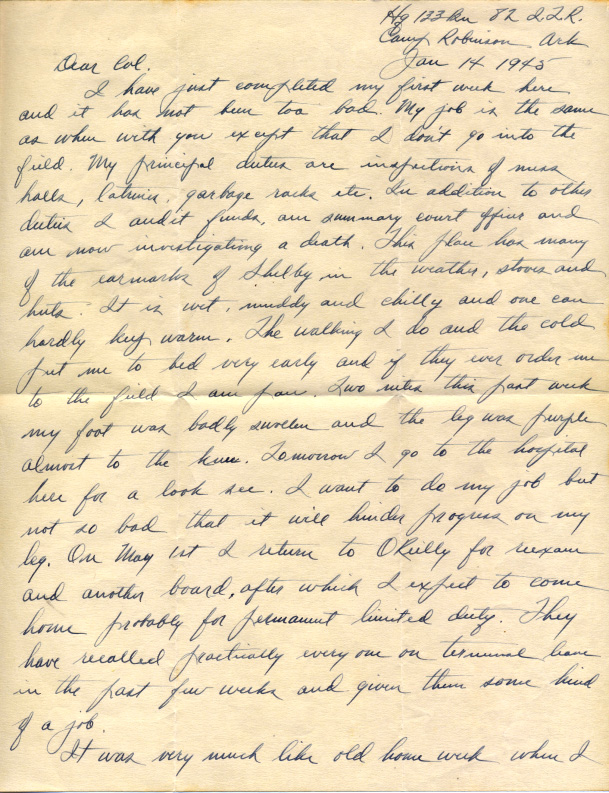 Hq 133 Bn 82 I.T.R.
Camp Robinson Ark
Jan 14 1945
Dear Col.
I have just completed my first week here
and it has not been too bad. My job is the same
as when with you except that I don't go into the
field. My principal duties are inspections of mess
halls, latrines, garbage racks etc. In addition to other
duties I audit funds, am summary court officer and
am now investigating a death. This place has many
of the earmarks of Shelby in the weather, stoves and
huts. It is wet, muddy and chilly and one can
hardly keep warm. The walking I do and the cold
put me to bed very early and if they ever order me
to the field I am
Two nites this past week
my foot was badly swollen and the leg was purple
almost to the knee. Tomorrow I go to the hospital
here for a look see. I want to do my job but
not so bad that it will hinder progress on my
leg. On May 1st I return to OReilly for reexam
and another board, after which I expect to come
home probably for permanent limited duty. They
have recalled practically every one on terminal leave
in the past few weeks and given them some kind
of a job.
It was very much like old home week when I